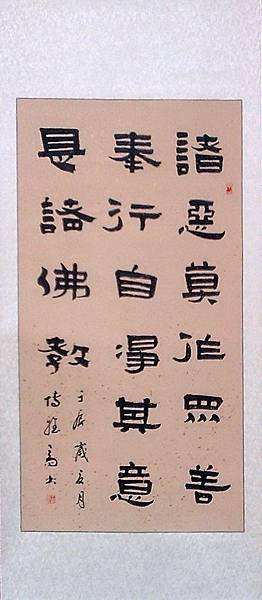 諸惡莫作眾善
奉行自淨其意
是諸佛教
壬辰歲夏月